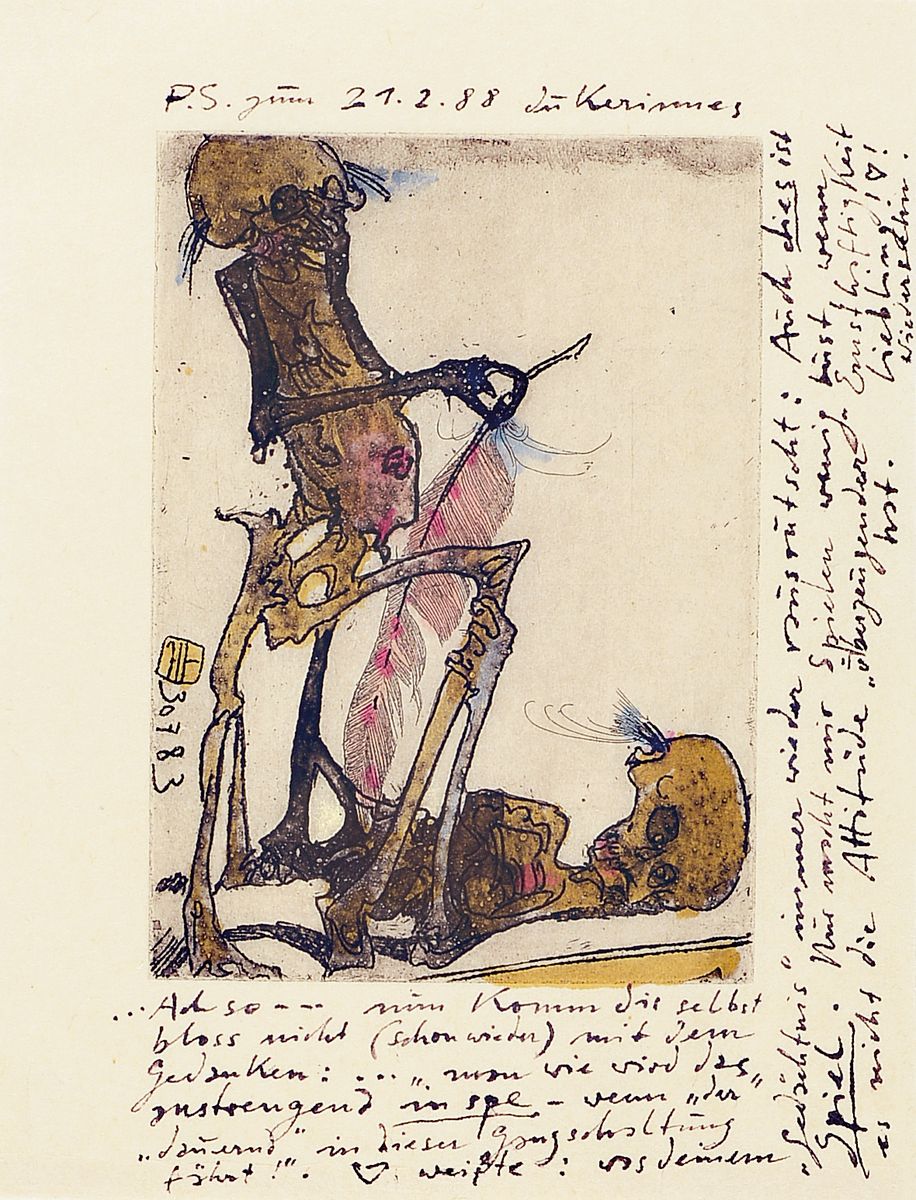 P.S. zum 21.2.88 du Kerinnes
30783
... Ach so --- nun komm dir selbst
bloss nicht (schon wieder) mit dem
Gedanken: ... „nan wie wird das
anstrengend in spe – wenn „der"
„dauernd" in dieser Gangschaltung
fährt!". weißte: was deinem
„Gedächtnis" immer wieder rausrutscht: Auch dies ist
Spiel. Nur macht mir Spielen wenig Lust wenn
es nicht die Attitüde „überzeugender Ernsthaftigkeit
hat. Liebling!
Wiedersehn.